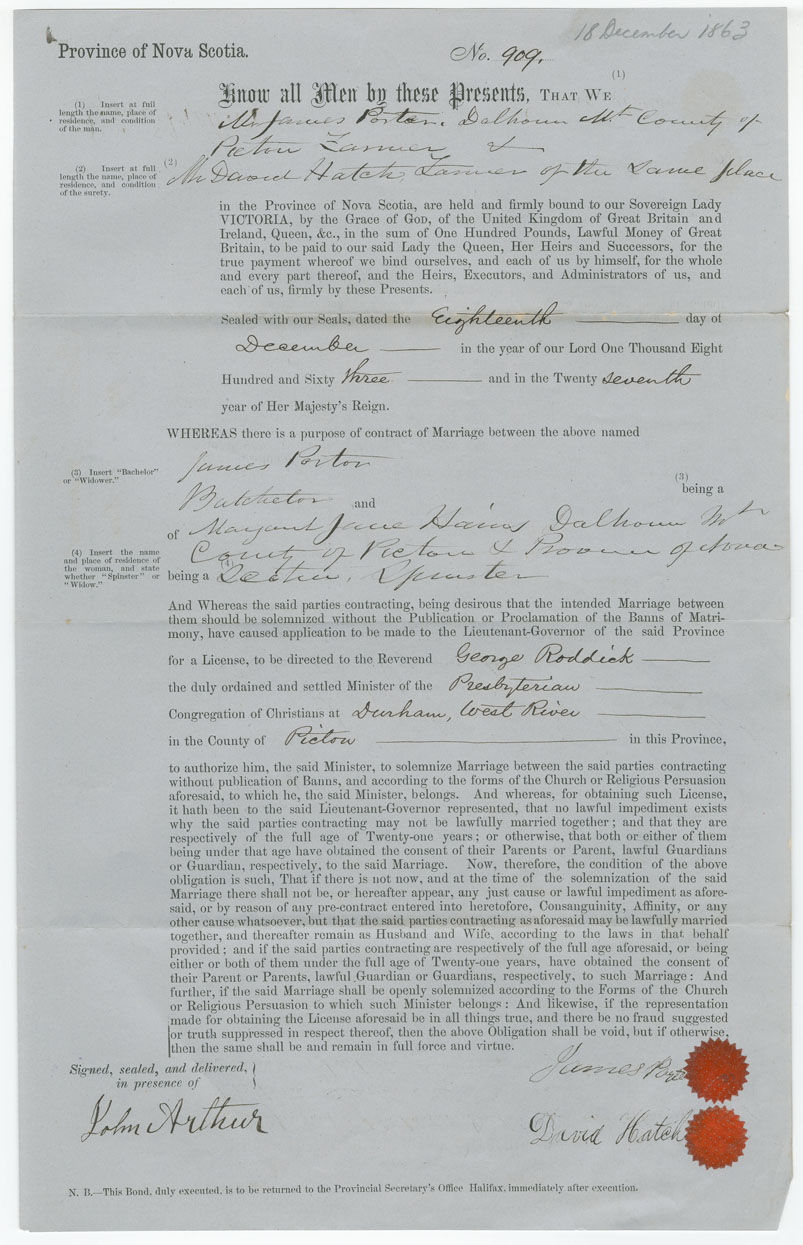 18 December 1863
Province of Nova Scotia.
No. 909.
(1)
Know all Men by these Presents, THAT WE
(1) Insert at full
length the name, place of
residence, and condition
of the man.
Mr James Porter, Dalhoun Mt County of
Picton Farmer &
(2) Insert at full
length the name, place of
residence, and condition
of the surety.
(2)
Mr David Hatch, Farmer of the Same place
in the Province of Nova Scotia, are held and firmly bound to our Sovereign Lady
VICTORIA, by the Grace of GOD, of the United Kingdom of Great Britain and
Ireland, Queen, &c., in the sum of One Hundred Pounds, Lawful Money of Great
Britain, to be paid to our said Lady the Queen, Her Heirs and Successors, for the
true payment whereof we bind ourselves, and each of us by himself, for the whole
and every part thereof, and the Heirs, Executors, and Administrators of us, and
each of us, firmly by these Presents.
Sealed with our Seals, dated the Eighteenth day of
December in the year of our Lord One Thousand Eight
Hundred and Sixty three and in the Twenty seventh
year of Her Majesty's Reign.
WHEREAS there is a purpose of contract of Marriage between the above named
(3) Insert "Bachelor"
or "Widower."
James Porter
(3)
being a
Batchelor and
of Margaret Jane Dalhoun Mtn
(4) Insert the name
and place of residence of
the woman, and state
whether "Spinster" or
"Widow."
County of Picton & Province of Nova
being a (4) Scotia, Spinster
And Whereas the said parties contracting, being desirous that the intended Marriage between
them should be solemnized without the Publication or Proclamation of the Banns of Matri-
mony, have caused application to be made to the Lieutenant-Governor of the said Province
for a License, to be directed to the Reverend George Roddick
the duly ordained and settled Minister of the Presbyterian
Congregation of Christians at Durham, West River
in the County of Picton in this Province,
to authorize him, the said Minister, to solemnize Marriage between the said parties contracting
without publication of Banns, and according to the forms of the Church or Religious Persuasion
aforesaid, to which he, the said Minister, belongs. And whereas, for obtaining such License,
it hath been to the said Lieutenant-Governor represented, that no lawful impediment exists
why the said parties contracting may not be lawfully married together; and that they are
respectively of the full age of Twenty-one years; or otherwise, that both or either of them
being under that age have obtained the consent of their Parents or Parent, lawful Guardians
or Guardian, respectively, to the said Marriage. Now, therefore, the condition of the above
obligation is such, That if there is not now, and at the time of the solemnization of the said
Marriage there shall not be, or hereafter appear, any just cause or lawful impediment as afore-
said, or by reason of any pre-contract entered into heretofore, Consanguinity, Affinity, or any
other cause whatsoever, but that the said parties contracting as aforesaid may be lawfully married
together, and thereafter remain as Husband and Wife, according to the laws in that behalf
provided; and if the said parties contracting are respectively of the full age aforesaid, or being
either or both of them under the full age of Twenty-one years, have obtained the consent of
their Parent or Parents, lawful Guardian or Guardians, respectively, to such Marriage: And
further, if the said Marriage shall be openly solemnized according to the Forms of the Church
or Religious Persuasion to which such Minister belongs: And likewise, if the representation
made for obtaining the License aforesaid be in all things true, and there be no fraud suggested
or truth suppressed in respect thereof, then the above Obligation shall be void, but if otherwise,
then the same shall be and remain in full force and virtue.
Signed, sealed, and delivered,
in presence of
James Porter
John Arthur
David Hatch
N. B.—This Bond, duly executed, is to be returned to the Provincial Secretary's Office Halifax, immediately after execution.